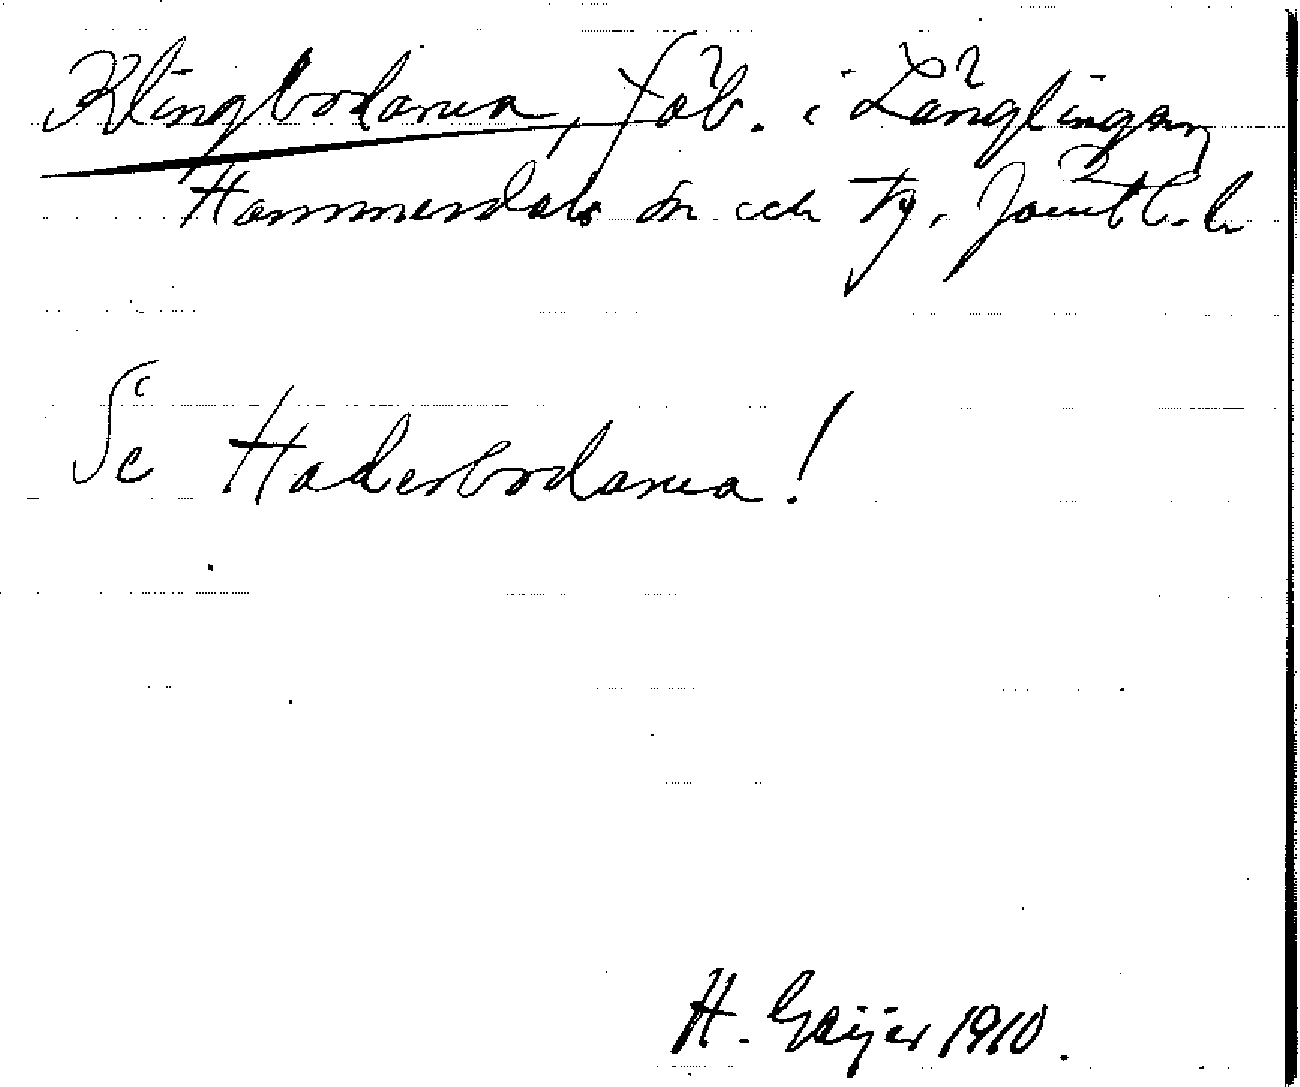 Klingbodarna, fäb. i Långlingen,
Hammerdals sn och tg, Jämtl. l.
Se Haderbodarna!
H. Geijer 1910.